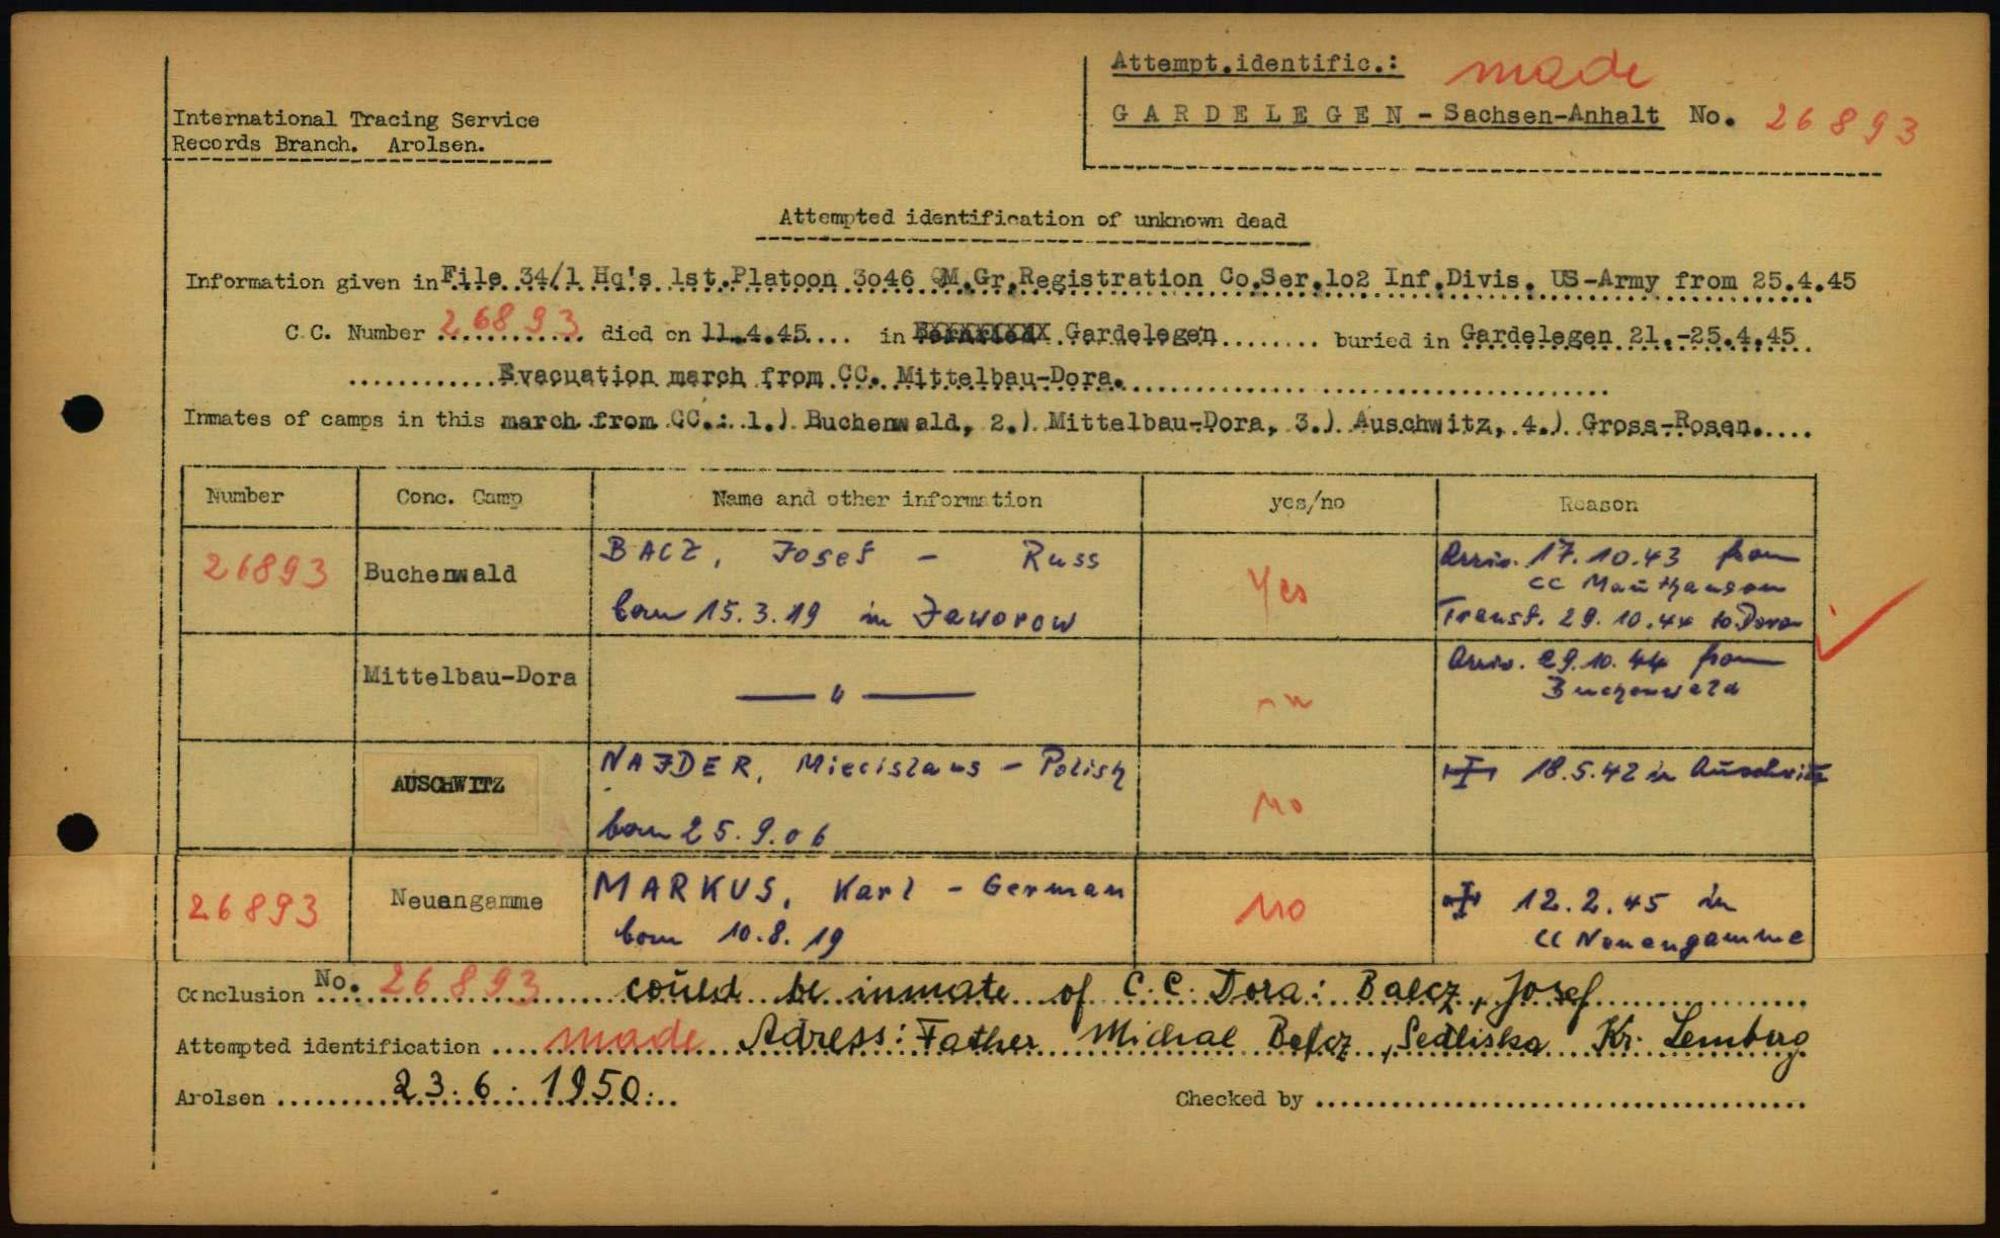 Attempt.identific.: made
International Tracing Service
Records Branch. Arolsen.
GARDELEGEN - Sachsen-Anhalt No. 26893
Attempted identification of unknown dead
Information given in File 34/1 Hq's 1st.Platoon 3o46 QM.Gr.Registration Co.Ser.1o2 Inf.Divis. US-Army from 25.4.45
C.C. Number 26893 died on 11.4.45.... in Gardelegen........ buried in Gardelegen 21.-25.4.45
Evacuation march from CC. Mittelbau-Dora.
Inmates of camps in this march from CC.: 1.) Buchenwald, 2.) Mittelbau-Dora, 3.) Auschwitz, 4.) Gross-Rosen.
Number Conc. Camp Name and other information yes/no Reason
26893 Buchenwald BACZ, Josef - Russ yes Arriv. 17.10.43 from
CC Mauthausen
born 15.3.19 in Jaworow Transf. 29.10.44 to Dora
Mittelbau-Dora — " — Arriv. 29.10.44 from
Buchenwald
AUSCHWITZ NAJDER, Miecislaus - Polish no 18.5.42 in Auschwitz
born 25.9.06
26893 Neuengamme MARKUS, Karl - German no 12.2.45 in
born 10.8.19 CC Neuengamme
Conclusion No. 26893 could be inmate of C.C. Dora: Balcz, Josef
Attempted identification made Adress: Father Michal Balcz, Sedliska Kr. Lemberg
Arolsen 23.6.1950. Checked by